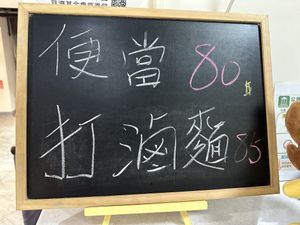 便當 80
打滷麵 85